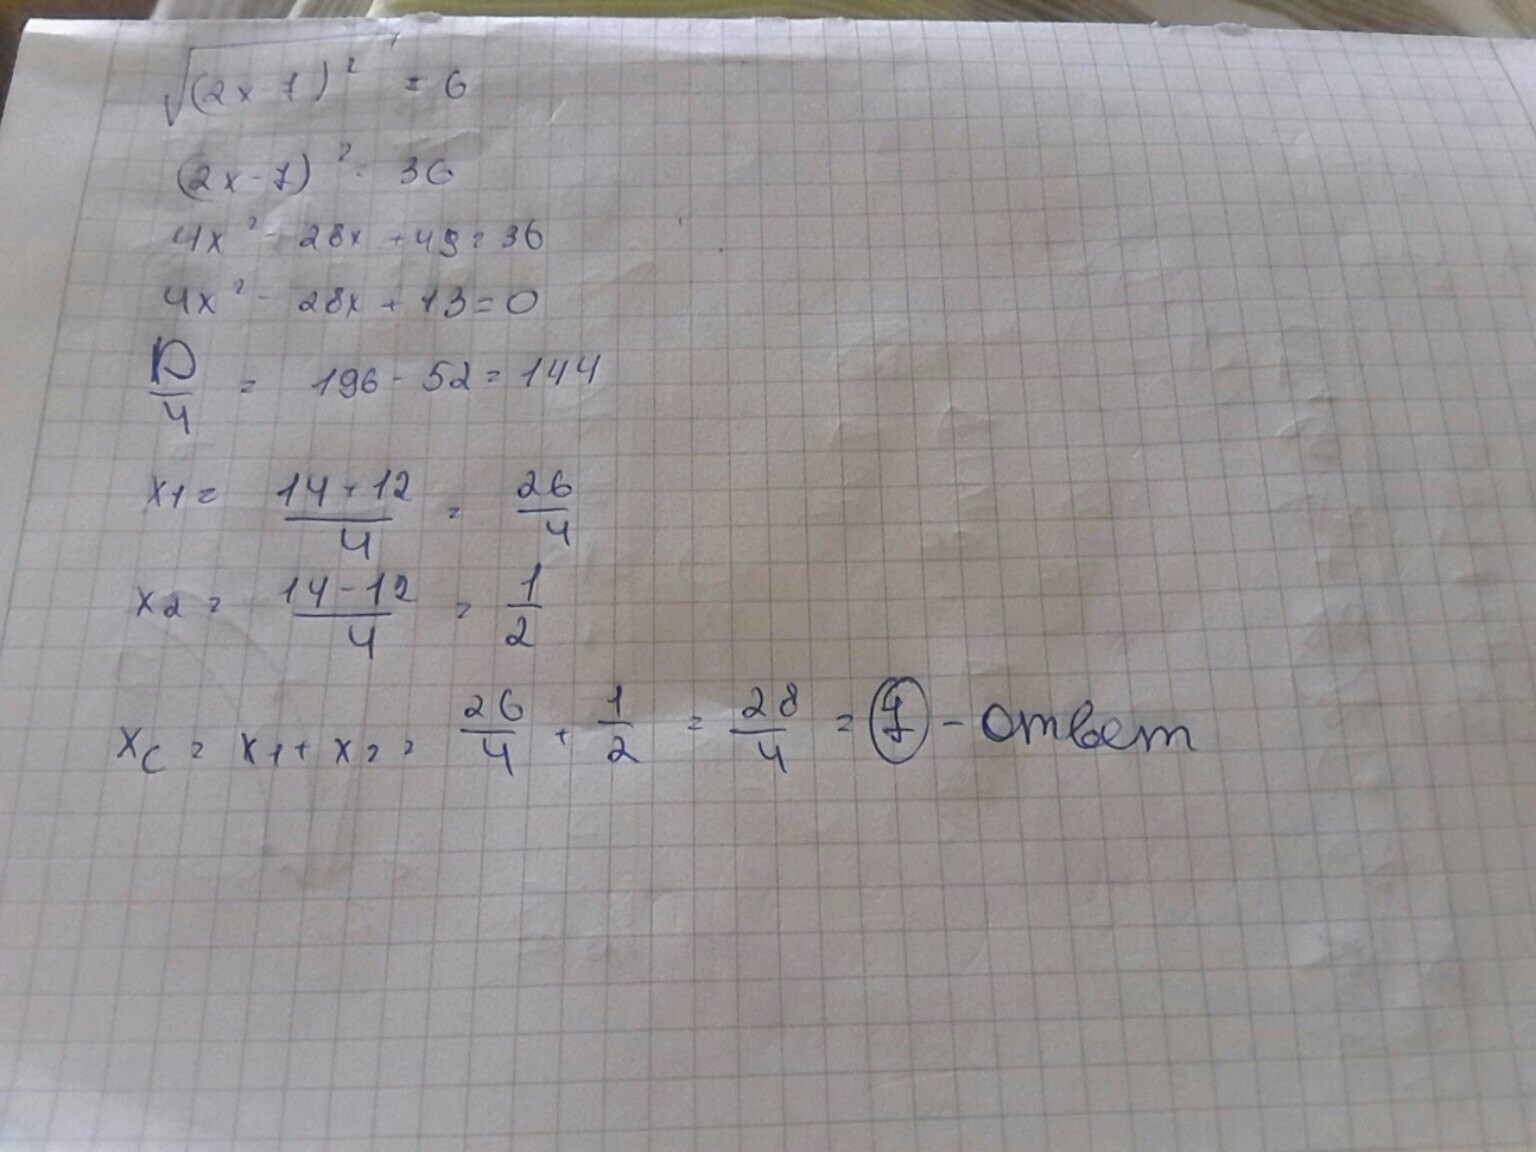 √(2x-7)² = 6
(2x-7)² = 36
4x² - 28x + 49 = 36
4x² - 28x + 13 = 0
D/4 = 196 - 52 = 144
x1 = (14+12)/4 = 26/4
x2 = (14-12)/4 = 1/2
xc = x1 + x2 = 26/4 + 1/2 = 28/4 = 7 - ответ